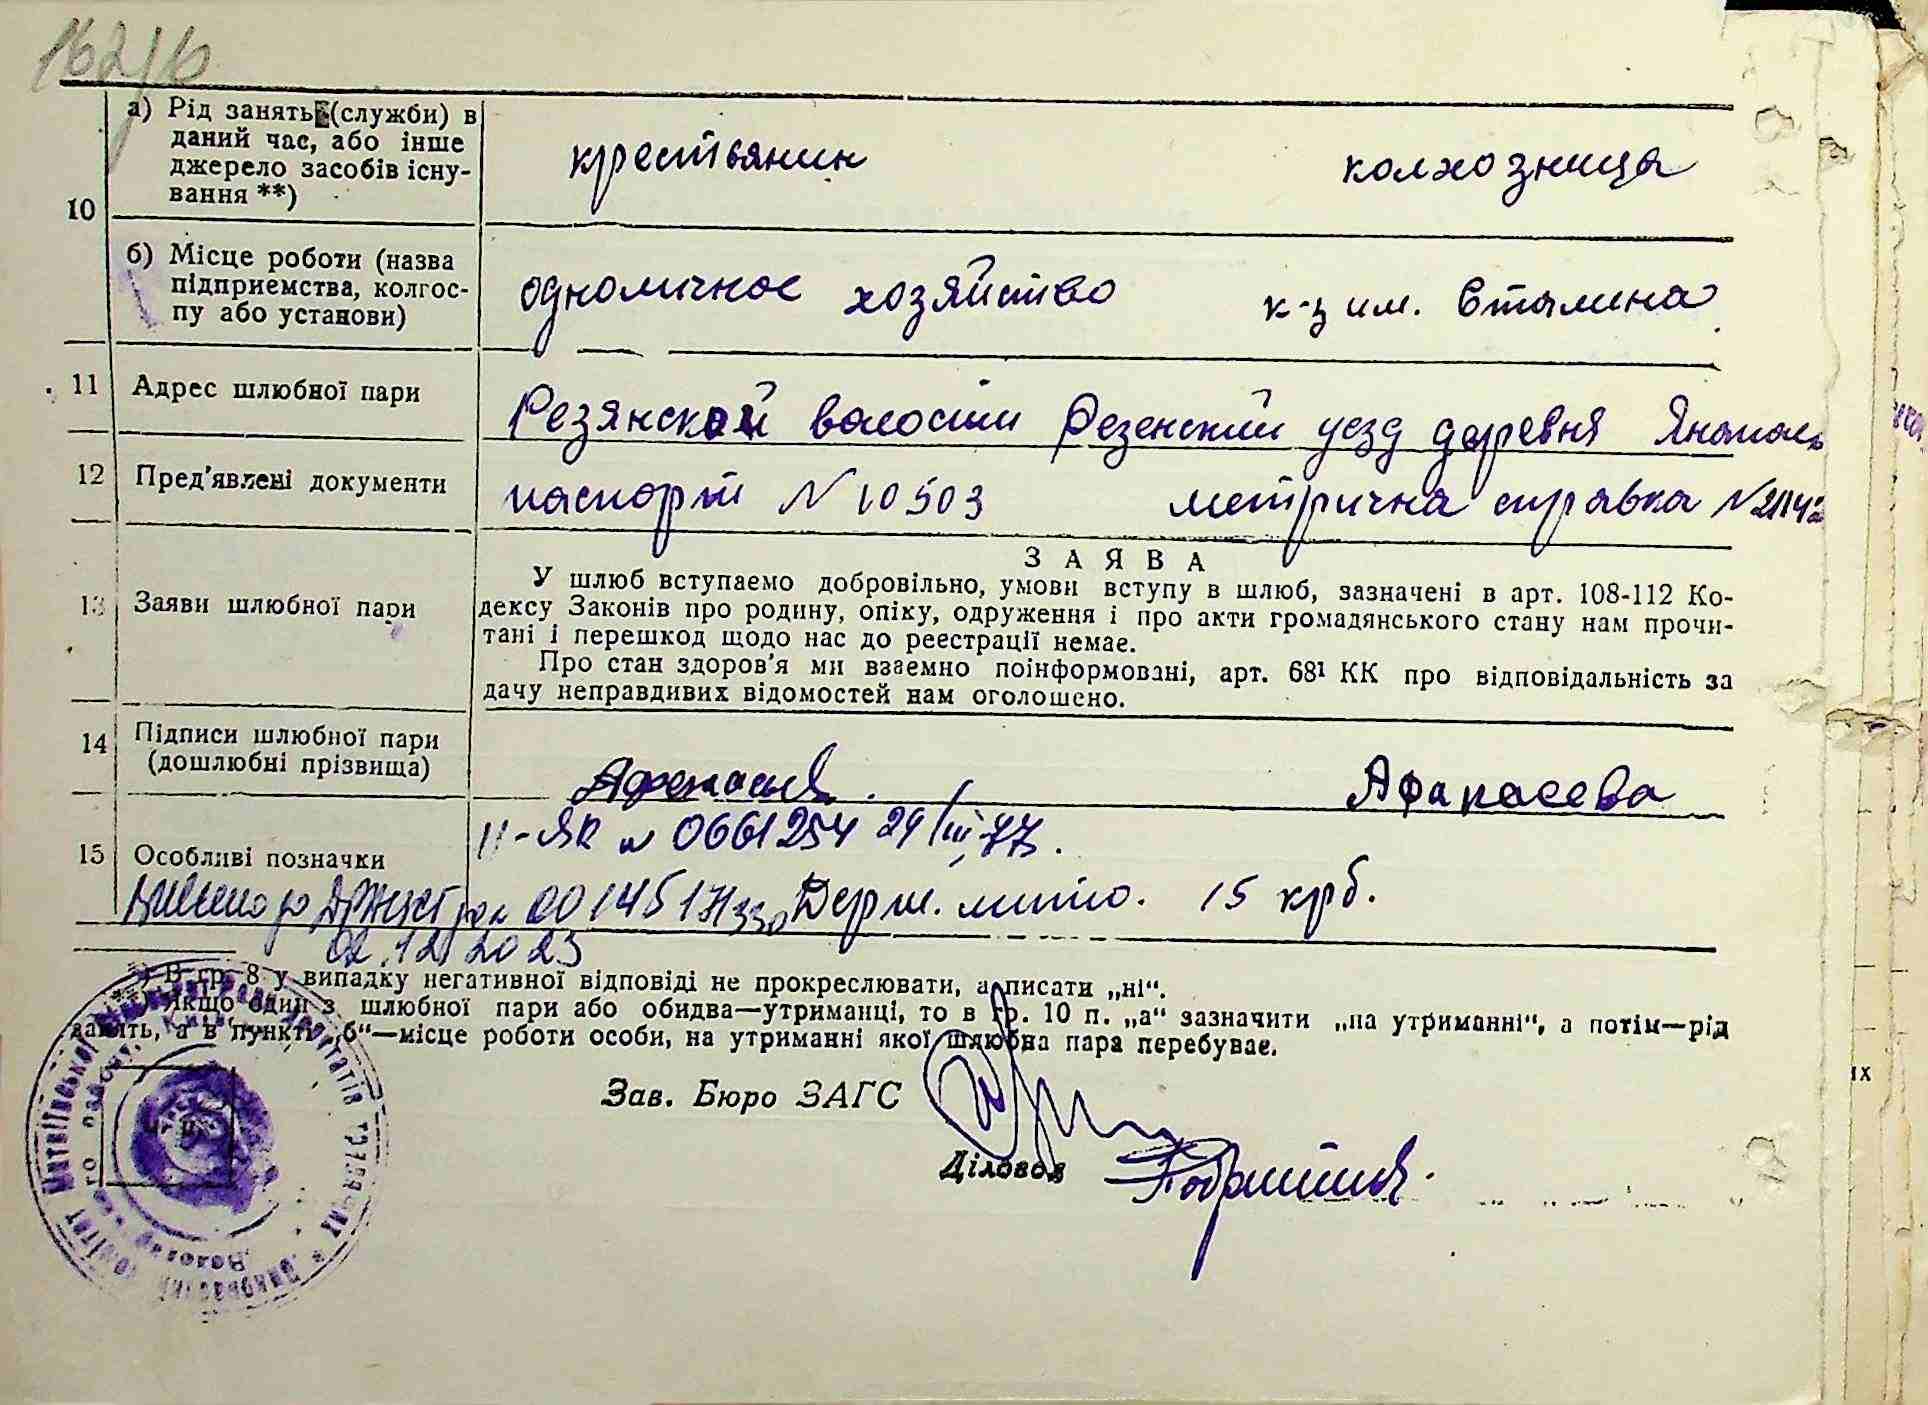 162/6
10
а) Рід занять (служби) в
даний час, або інше
джерело засобів існу-
вання **)
крестьянин
колхозница
б) Місце роботи (назва
підприемства, колгос-
пу або установи)
одноличное хозяйство
к-з им. Сталина
11
Адрес шлюбної пари
Резянской волости Резенский уезд деревня Янополь
12
Пред'явлені документи
паспорт N 10503
метрична справка N
13
Заяви шлюбної пари
ЗАЯВА
У шлюб вступаемо добровільно, умови вступу в шлюб, зазначені в арт. 108-112 Ко-
дексу Законів про родину, опіку, одруження і про акти громадянського стану нам прочи-
тані і перешкод щодо нас до реестрації немае.
Про стан здоров'я ми взаемно поінформовані, арт. 68¹ КК про відповідальність за
дачу неправдивих відомостей нам оголошено.
14
Підписи шлюбної пари
(дошлюбні прізвища)
Афанасьев
Афанасева
II-ЯК N 0661254 29/III-77.
15
Особливі позначки
00145171330
Держ. мито. 15 крб.
02.12.2023
*) В гр. 8 у випадку негативної відповіді не прокреслювати, а писати „ні“.
**) Якщо один з шлюбної пари або обидва—утриманці, то в гр. 10 п. „а“ зазначити „на утриманні“, а потім—рід
занять, а в пункті „б“—місце роботи особи, на утриманні якої шлюбна пара перебувае.
Зав. Бюро ЗАГС
Діловод